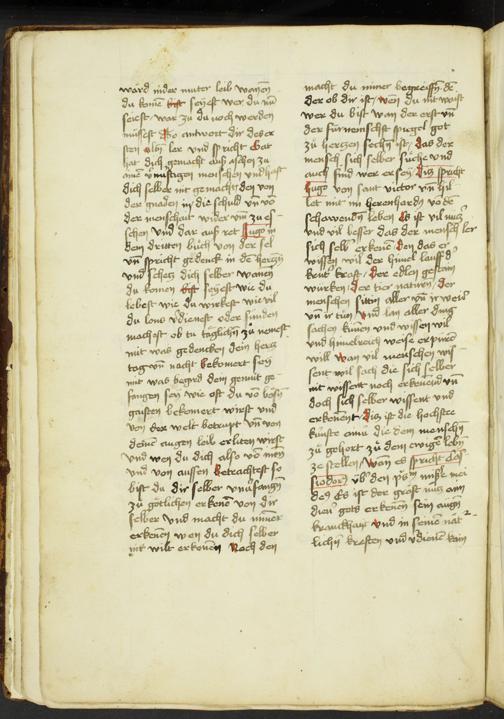 ward in der muter leib wanen
du kome bist seyest wer du nu
seiest war zu du noch werden
müssest So antwort dir der er
sten ler und spricht Got
hat dich gemacht auß aschen zu
ainem vnuftigen menschen und hast
dich selber nit gemacht den von
der gnaden in die schuld vnd vo
der menschait wider vm zu es
schen Und dar auf ret hugo in
dem dritten buch von der sel
vn spricht gedenck in de hertzen
und schetz dich selber wanen
du komen bist seyest wie du
lebest wie du wirkest wie vil
du lons verdienest oder sunden
machest ob tu täglichen zu nemest
mit was gedencken dein hertz
tog vn nacht bekomert sey
mit was begird dein gemut ge
fangen sey wie oft du vo bosen
gaisten bekomert wirst und
von der welt betrupt vn von
deine augen leib erliten wirst
und wen du dich also von inen
und von aussen betrachtest so
bist du dir selber und anfang
zu götlichen erkenen von dir
selber Und macht du nimer
erkenen wen du dich selber
nit wilt erkenen Nach den
macht du nimer begreiffen de
der ob dir ist wen du nit waist
wer du bist Wan der erst vn
der fürnemschst spiegel got
zu hertzen sechen ist das der
mensch sich selber suche und
auch find wer er sey Diß spricht
hugo von sant victor vn hil
let mit im herenhardus vo de
schawenden leben Es ist vil nutz
und vil besser das der mensch ler
sich selb erkene den das er
wissen wil der himel lauff d
kreut kraft der edlen gestain
würken der tier naturen der
menschen siten aller vn ir wesen
vn ir tun Und lan aller ding
sachen kunen und wissen wil
und himelreich weise erspiren
will Wan vil menschen wis
sent vil sach die sich selber
nit wissent noch erkenent vn
doch sich selber wissent und
erkennent Diß ist die hochste
kunst aine die dem menschen
zu gehort zu dem ewigen leben
ze stellen Wan es spricht des
isidor üb den psm misere mei
deus Es ist der gröst nutz ann
diener gots erkenen sein augen
kranckhait Und in seiner nat
lichen kresten und verdienen kain